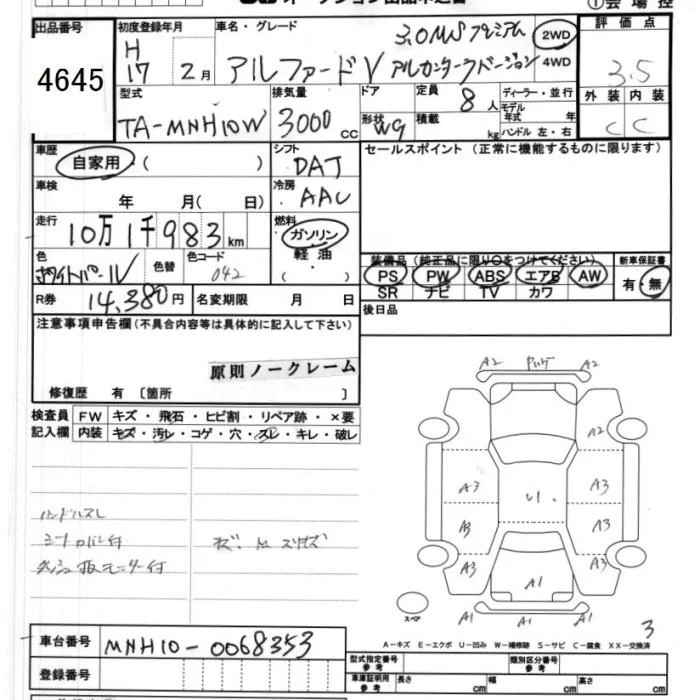 出品番号 初度登録年月 車名・グレード 評価点
4645 H17 2月 アルファードV 3.0MSプレミアム アルカンターラバージョン 2WD 4WD 3.5
外装 内装
C C
型式 排気量 ドア 定員 8人 ディーラー・並行
モデル年式 年式
TA-MNH10W 3000cc 形状 WG 積載 kg ハンドル 左・右
車歴 自家用 ( ) シフト DAT セールスポイント (正常に機能するものに限ります)
車検 年 月( 日) 冷房 AAC
走行 10万1千983km 燃料 ガソリン 軽油 ( )
色 ホワイトパール 色替 色コード 042
装備品 (純正品に限り○をつけてください) 新車保証書
PS PW ABS エアB AW 有・無
SR ナビ TV カワ
R券 14,380円 名変期限 月 日 後日品
注意事項申告欄 (不具合内容等は具体的に記入して下さい)
原則ノークレーム
修復歴 有 〔箇所 〕
検査員 FW キズ・飛石・ヒビ割・リペア跡・×要
記入欄 内装 キズ・汚レ・コゲ・穴・スレ・キレ・破レ
ハンドルスレ
シートカバー付
A2 A2
A2
A3 A3
A3 A3
A3 A3
U1
A1
A1 A1
スペア
3
A-キズ E-エクボ U-凹み W-補修跡 S-サビ C-腐食 XX-交換済
車台番号 MNH10-0068353
登録番号
型式指定番号 参考 類別区分番号 参考
車庫証明用 参考 長さ cm 幅 cm 高さ cm